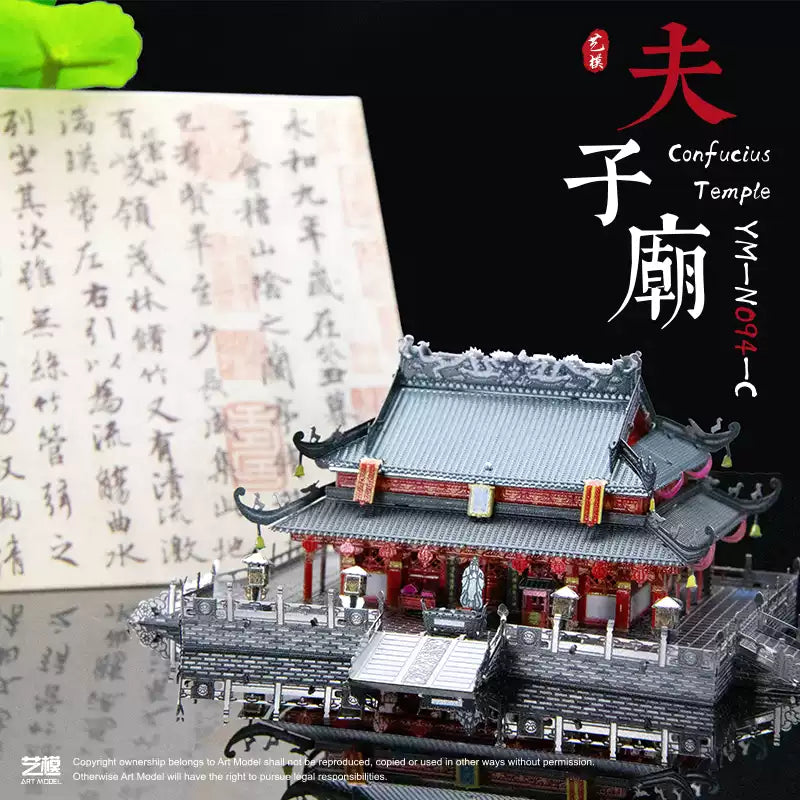 艺模
夫子廟
Confucius
Temple
YM-N094-C
永和九年歲在癸丑
于會稽山陰之蘭亭
也羣賢畢至少長咸集此地
有崇山峻領茂林脩竹又有清流激
湍暎帶左右引以為流觴曲水
列坐其次雖無絲竹管弦之
艺模
ART MODEL
Copyright ownership belongs to Art Model shall not be reproduced, copied or used in other ways without permission.
Otherwise Art Model will have the right to pursue legal responsibilities.